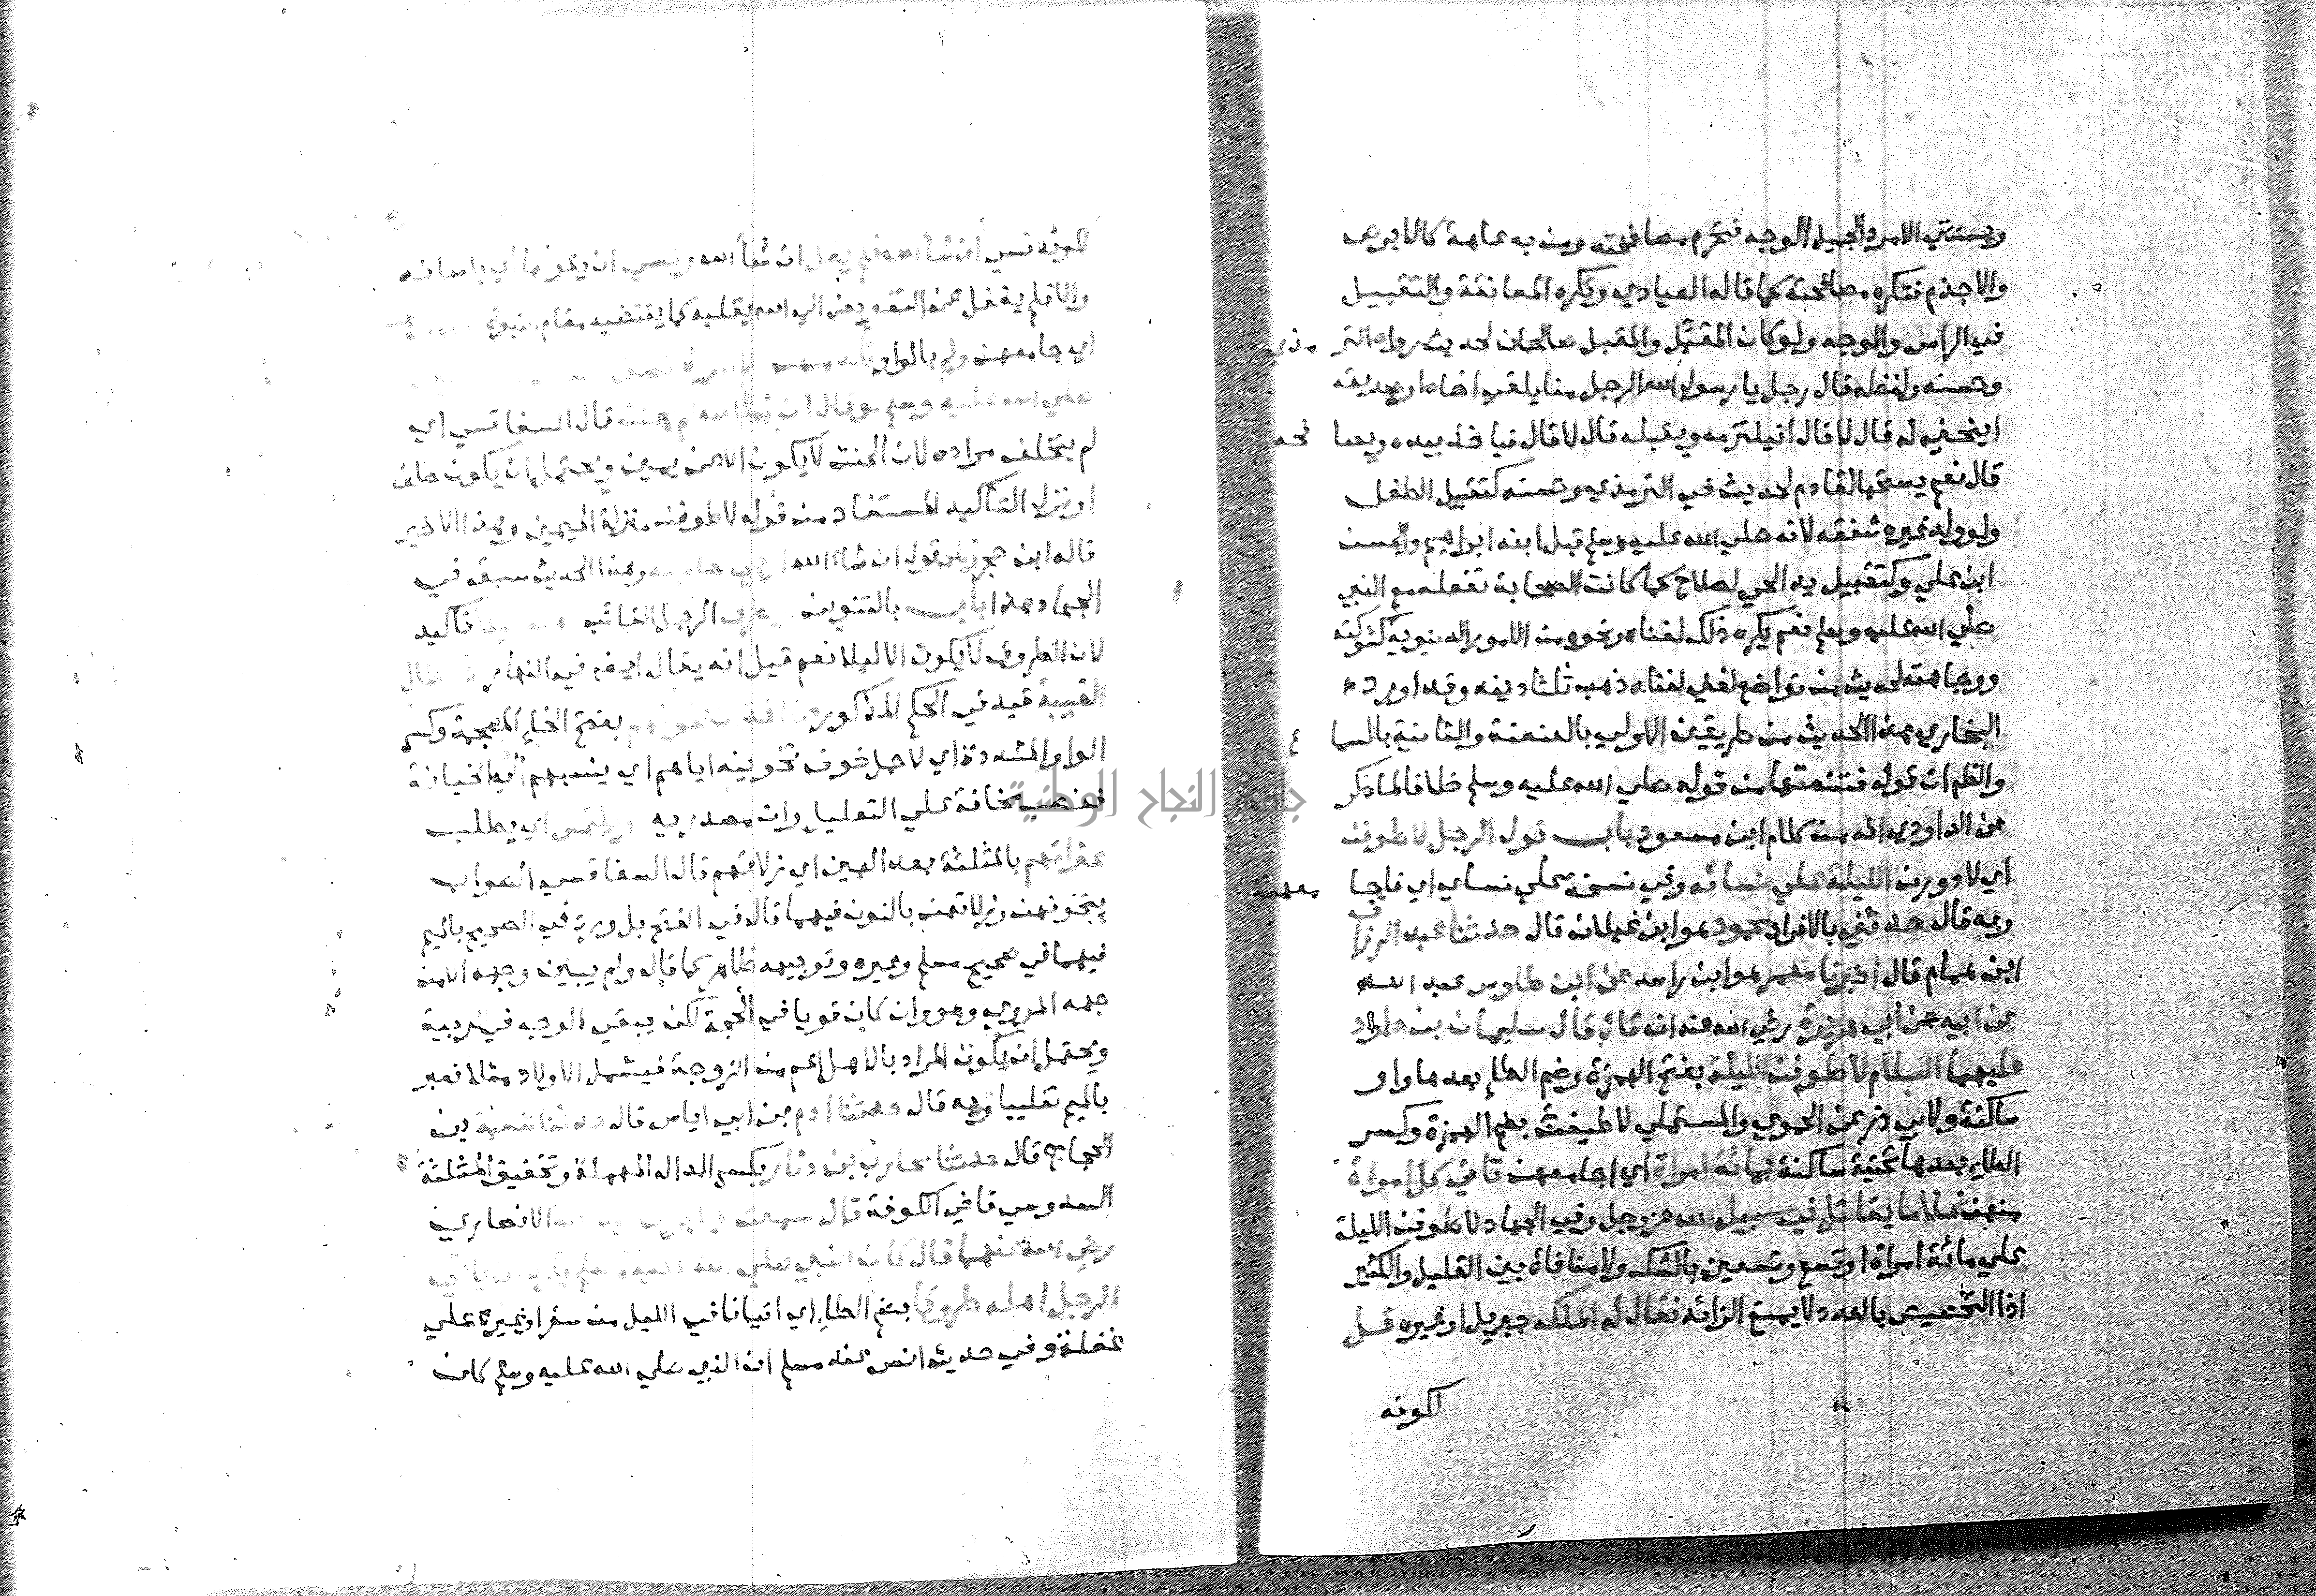 ويستثني الامرد الجميل الوجه فتحرم مصافحته ومن به عاهة كالابرص
والاجذم فتكره مصافحته كما قاله العبادي ويكره المعانقة والتقبيل
في الراس والوجه ولو كان المقبِّل والمقبل صالحان لحديث رواه الترمذي
وحسنه ولفظه قال رجل يا رسول الله الرجل منا يلقي اخاه او صديقه
اينحني له قال لا قال افيلتزمه ويقبله قال لا قال فياخذ بيده ويصافحه
قال نعم يستحب القادم لحديث في الترمذي وحسنه كتقبيل الطفل
ولو ولد غيره شفقة لانه صلي الله عليه وسلم قبل ابنه ابراهيم والحسن
ابن علي وكتقبيل يد الحي لصلاح كما كانت الصحابة تفعله مع النبي
صلي الله عليه وسلم نعم يكره ذلك لغناه ونحوه من الامور الدنيوية كشوكته
ووجاهته لحديث من تواضع لغني لغناه ذهب ثلثا دينه وقد اورد
البخاري هذا الحديث من طريقين الاولي بالعنعنة والثانية بالسماع
والظم ان قوله فتنعتها من قوله صلي الله عليه وسلم خلافا لما ذكر
عن الداودي انه من كلام ابن مسعود باب قول الرجل لاطوفن
اي لادورن الليلة علي نسائه وفي نسخة علي نساي اي فاجامعهن
وبه قال حدثني بالافراد محمود هو ابن غيلان قال حدثنا عبد الرزاق
ابن همام قال اخبرنا معمر هو ابن راشد عن ابن طاوس عبد الله
عن ابيه عن أبي هريرة رضي الله عنه انه قال قال سليمان بن داود
عليهما السلام لاطوفن الليلة بفتح الهمزة وضم الطاء بعدها واو
ساكنة ولابي ذر عن الحموي والمستملي لاطيفن بضم الهمزة وكسر
الطاء بعدها تحتية ساكنة بمائة امراة اي اجامعهن تاتي كل امراة
منهن غلاما يقاتل في سبيل الله عز وجل وفي الجهاد لاطوفن الليلة
علي مائة امراة او تسع وتسعين بالشك ولا منافاة بين القليل والكثير
اذا التخصيص بالعدد لا يمنع الزائد فقال له الملك جبريل او غيره قل
لكونه
لكونه نسي ان شا الله فلم يقل ان شأ الله ونسي ان يقولها اي بلسانه
والا فلم يغفل عن التفويض الي الله بقلبه كما يقتضيه مقام النبوة
اي جامعهن ولم بالواو تلد منهن
صلي الله عليه وسلم لو قال ان شا الله لم يحنث قال السفاقسي اي
لم يتخلف مراده لان الحنث لا يكون الا عن يمين ويحتمل ان يكون حلف
او نزل التاكيد المستفاد من قوله لاطوفن منزلة اليمين وهذا الاخير
قاله ابن حجر وكان قوله ان شا الله ارجي لحاجته وهذا الحديث سبق في
الجهاد هذا باب بالتنوين يطرق الرجل الغائب تاكيد
لان الطروق لا يكون الا ليلا نعم قيل انه يقال ايضه في النهار
الغيبة قيد في الحكم المذكور مخافة ان يخونهم بفتح الخاء المعجمة وكسر
الواو المشددة اي لاجل خوف تخوينه اياهم اي ينسبهم الي الخيانة
فنصب مخافة علي التعليل وان مصدريه ويلتمس اي يطلب
عثراتهم بالمثلثة بعد العين اي زلاتهم قال السفاقسي الصواب
يتخونهن وزلاتهن بالنون فيهما قال في الفتح بل ورد في الصحيح بالميم
فيهما في صحيح مسلم وغيره وتوجيهه ظاهر كما قال ولم يبين وجهه الا من
جهه المروي وهو وان كان قويا في الحجة لكن يبقي الوجه في العربية
ويحتمل ان يكون المراد بالاهل اعم من الزوجة فيشمل الاولاد مثلا فعبر
بالميم تغليبا وبه قال حدثنا ادم بن ابي اياس قال حدثنا شعبة بن
الحجاج قال حدثنا محارب بن دثار بكسر الدال المهملة وتخفيف المثلثة
السدوسي قاضي الكوفة قال سمعت جابر بن عبد الله الانصاري
رضي الله عنهما قال كان النبي صلي الله عليه وسلم يكره ان ياتي
الرجل اهله طروقا بضم الطاء اي اتيانا في الليل من سفر او غيره علي
غفلة وفي حديث انس عند مسلم ان النبي صلي الله عليه وسلم كان
جامعة النجاح الوطنية